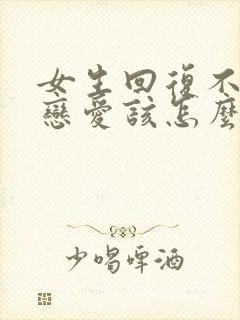 女生回復不
戀愛該怎麼
少喝啤酒